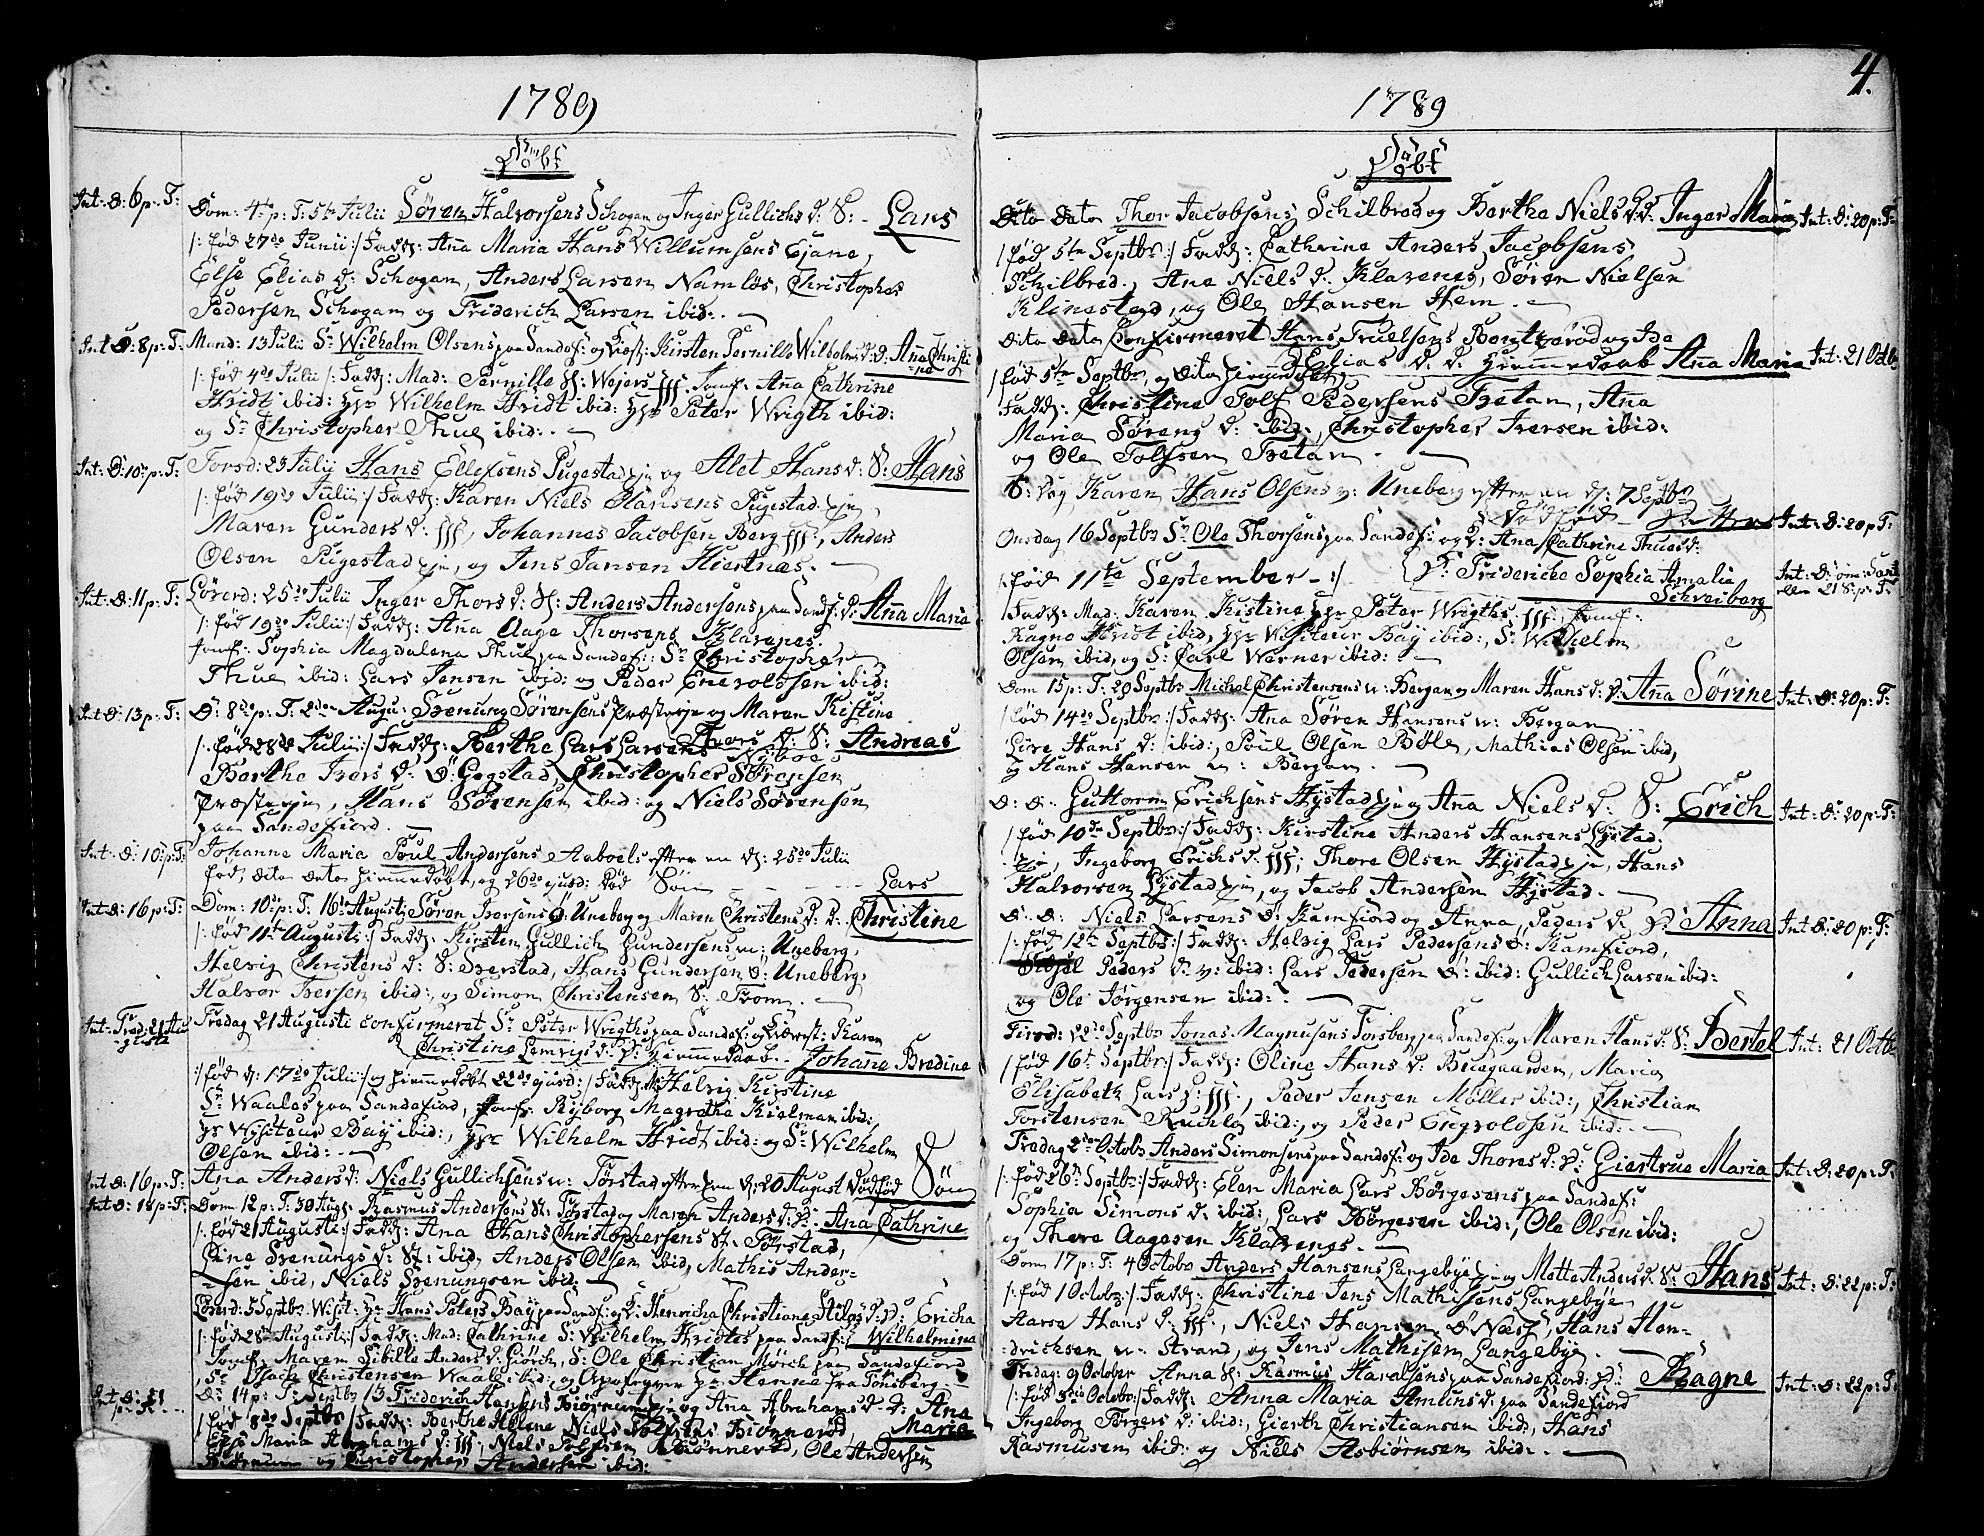 1789
Døbt
Int: D: 6 p: T: Dom: 4de p: T: 5te Julii Søren Halvorsens Schogam og Inger Gullichs d: S: - Lars
/: fød 27de Junii :/ Fadd: Aña Maria Hans Willumsens Ejane,
Else Elias d: Schogam, Anders Larsen Namløs, Christopher
Pedersen Schogam og Friderich Larsen ibid: . —
Int: D: 8 p: T: Mand: 13 Julii Sr Wilhelm Olsens paa Sandef: og Kirsten Pernille Wilhelms d: D: Aña Christi
ne
/: fød 4de Julii /: Fadd: Mad: Pernille Sl: Wejers, Jomf: Aña Cathrine
Hvidt ibid: Hr Wilhelm Hvidt ibid: Hr Peter Wrigth ibid:
og Sr Christopher Thue ibid: . —
Int: D: 10 p: T: Torsd: 23 Julii Hans Ellefsens Pugestad og Alet Hans d: S: Hans
/: fød 19de Julii :/ Fadd: Karen Niels Hansens Pugestad,
Maren Gunders d:, Johannes Jacobsen Berg, Anders
Olsen Pugestad, og Jens Jansen Hiertnes. —
Int: D: 11 p: T: Løverd: 25de Julii Inger Thors d: Sl: Anders Andersens paa Sandef: D: Aña Maria
/: fød 19de Julii :/ Fadd: Aña Aage Thorsens Klavenes.
Jomf: Sophia Magdalena Thue paa Sandef: Sr Christopher
Thue ibid: Lars Jensen ibid: og Peder Engvoldsen ibid:
Int: D: 13 p: T: D: 8de p: T: 2den Augu: Svenung Sørensens Præsterje og Maren Kistine
Ivers d: S: Andreas
/: fød 28de Julii :/ Fadd: Berthe Lars Larsens Nyboe
Berthe Ivers d: D: Gogstad, Christopher Sørensen
Præsterje, Hans Sørensen ibid: og Niels Sørensen
paa Sandefiord. —
Int: D: 10 p: T: Johanne Maria Poul Andersens Aaboels efter en d: 25de Julii
fød, dito dato hiemmedøbt, og 26de ejusd: død Søn - - - Lars
Int: D: 16 p: T: Dom: 10de p: T: 16de Augusti Søren Iversens D: Uneberg og Maren Christens d: D: Christine
/: fød 11te Augusti :/ Fadd: Kirsten Gullich Gundersens m: Uneberg,
Helvig Christens d: S: Sverstad, Hans Gundersen D: Uneberg,
Halvor Iversen ibid:, og Simon Christensen S: From. —
Int: Fred: 21 Au
gusti Fredag 21 Augusti confirmeret Sr Peter Wrigths paa Sandef: og Kiærest: Karen
Christine Lemvigs d: D: hiemmedaab. - Johañe Bredine
/: fød d: 17de Julii :/ og hiemmedøbt 22de ejusd: / Fadd: Helvig Kistine
Sr Waales paa Sandefiord, Jomf: Ryborg Magrethe Kielman ibid:,
Hr Visiteur Baÿ ibid:, Hr Wilhelm Hvidt ibid: og Sr Wilhelm
Olsen ibid: . —
Int: D: 16 p: T: Aña Anders d: Niels Gullichsens m: Forstad efter en d: 20 August dødfød Søn
Int: D: 18 p: T: Dom 12 p: T: 30 Aug: Rasmus Andersens St: Forstad og Maren Anders d: D: Aña Cathrine
/: fød 21 Augusti :/ Fadd: Aña Hans Christophersens St: Forstad,
Line Svenungs d: St: ibid, Anders Olsen ibid, Mathis Ander-
sen ibid, Niels Svenungsen ibid: —
Løverd: 5 Septbr Visit: Hr Hans Peters Baÿ paa Sandef: og Henricha Christiane d: D: Ericha
Wilhelmina
/: fød 28de Augusti :/ Fadd: Mad: Cathrine S: Wilhelm Hvidtes paa Sandf:
Jomf: Maren Sibille Anders d: Giørch, S: Ole Christian Mørch paa Sandefiord
Sr Isach Christensen Waale ibid: og Apotheqver Hr Henna fra Tønsberg -
D: 14 p: T: Septbr 13 Friderich Hansens Biørnum og Aña Abrahams d: D: Aña
Maria
/: fød 8de Septbr :/ Fadd: Berthe Helene Niels Tolfsens Biønnerød
Else Maria Abrahams d:, Niels Tolfsen Biønnerød, Ole Andersen
Biørnum og Christopher Andersen ibid:

4.
1789
Døbt
Dito Dato Thor Jacobsens Schilbred og Berthe Niels d: D: Inger Maria Int: D: 20 p: T:
/: fød 5te Septbr :/ Fadd: Cathrine Anders Jacobsens
Schilbred, Ane Niels d: Klavenes, Søren Nielsen
Klinestad, og Ole Hansen Hem. —
Dito Dato Confirmeret Hans Truelsens Bontzerød og Ida
Elias d: D: hiemmedaab Aña Maria Int: 21 Octbr
/: fød 5te Septbr, og dito hiemmedøbt
Fadd: Christine Tolf Pedersens Fretam, Aña
Maria Sørens d: ibid:, Christopher Iversen ibid:
og Ole Tolfsen Fretam. —
D: Dag Karen Hans Olsens v: Uneberg efter en d: 7 Septbr
dødfød - Datter Int: D: 20 p: T:
Onsdag 16 Septbr Sr Ole Thorsens paa Sandef: og D: Ana Cathrine Thues d:
/: fød 11te September - :/ D: Fridericke Sophia Amalia
Schreiberg Int: D:
eller 21 S: p: T:
Fadd: Mad: Karen Kistine Hr Peter Wrigths, Jomf:
Ragno Hvidt ibid, Hr Visiteur Baÿ ibid:, Sr Wilhelm
Olsen ibid, og S: Carl Werner ibid: —
Dom 15 p: T: 20 Septbr Michel Christensens v: Bergan og Maren Hans d: D: Aña Sørine Int: D: 20 p: T:
/: fød 14de Septbr :/ Fadd: Ana Søren Hansens v: Bergan
Live Hans d: ibid:, Poul Olsen Bøle, Mathias Olsen ibid,
og Hans Hansen m: Bergan. —
D: D: Guttorm Erichsens Hystad og Aña Niels d: S: Erich Int: D: 20 p: T:
/: fød 10de Septbr :/ Fadd: Kirstine Anders Hansens Lystad
, Ingeborg Erichs d:, Thore Olsen Hystad, Hans
Halvorsen Lystad, og Jacob Andersen Hystad. —
D: D: Niels Larsens D: Kamfiord og Anna Peders d: D: Anna Int: D: 20 p: T:
/: fød 12te Septbr :/ Fadd: Helvig Lars Pedersens D: Kamfiord,
Sidsel Peders d: v: ibid: Lars Pedersen D: ibid: Gullich Larsen ibid:
og Ole Jørgensen ibid: —
Tirsd: 22de Septbr Jonas Magnusens Forsberg paa Sandef: og Maren Hans d: S: Bertel Int: 21 Octbr
/: fød 16t Septbr :/ Fadd: Oline Hans d: Bugaarden, Maria
Elisabeth Lars d:, Peder Jensen Møller ibid:, Christian
Torstensen Ruchla ibid:, og Peder Engvoldsen ibid: —
Fredag 2den Octobr Anders Simonsens paa Sandef: og Ide Thores d: D: Giertrue Maria Int: D: 20 p: T:
/: fød 26de Septbr :/ Fadd: Elen Maria Lars Børgesens paa Sandef:
Sophia Simons d: ibid: Lars Børgesen ibid:, Ole Olsen ibid:
og Thore Aagesen Klavenes. —
Dom 17 p: T: 4 Octobr Anders Hansens Langebye og Mette Anders d: S: Hans Int: D: 22 p: T:
/: fød 1 Octobr :/ Fadd: Christine Jens Mathisens Langebye
Aarse Hans d:, Niels Hansen D: Næss, Hans Hen-
drichsen m: Strand, og Jens Mathisen Langebye. —
Fredag: 9 October Anna Sl: Rasmus Haraldsens paa Sandefiord: D: Ragne Int: D: 22 p: T:
/: fød 3die Octobr :/ Fadd: Anna Maria Amunds d: paa Sandefiord
Ingeborg Torgers d: ibid:, Gierth Christiansen ibid:, Hans
Rasmusen ibid: og Niels Asbiørnsen ibid: . —